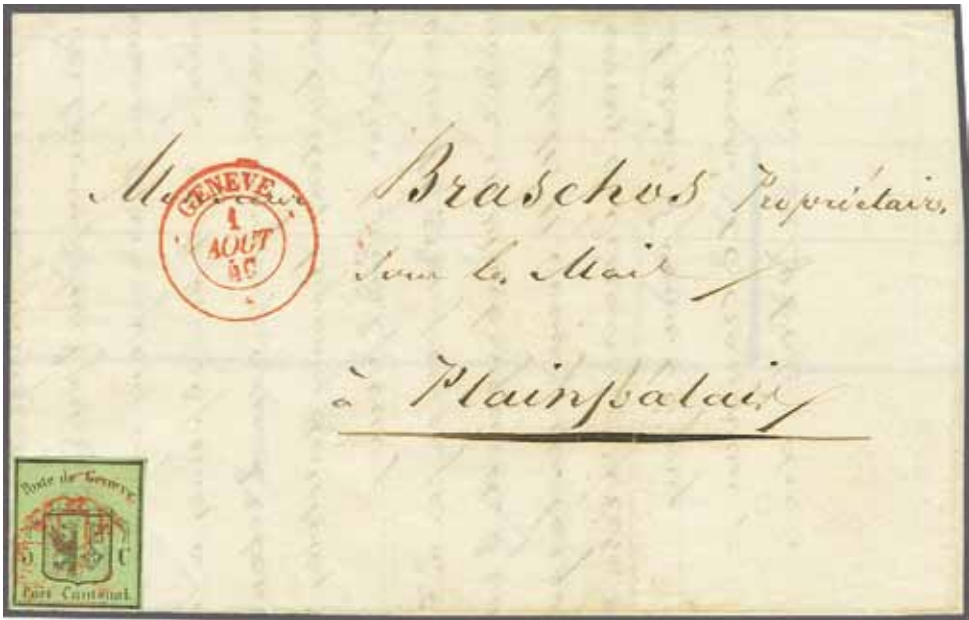 Monsieur Braschos Propriétaire
sur le Mail
à Plainpalais
GENEVE
1
AOUT
46
Poste de Genève
5 C
Port Cantonal.